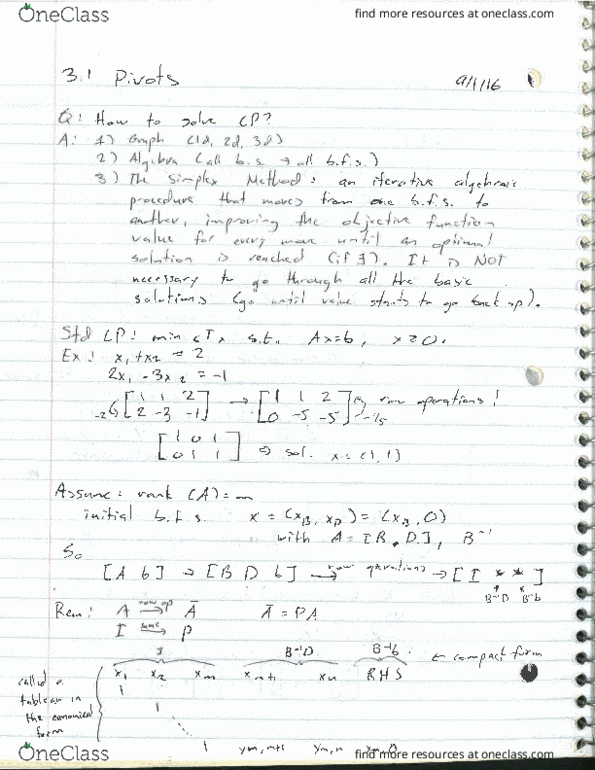 OneClass find more resources at oneclass.com
3.1 Pivots 9/1/16
Q: How to solve LP?
A: 1) Graph (1d, 2d, 3d)
2) Algebra (all b.s. → all b.f.s.)
3) The Simplex Method: an iterative algebraic
procedure that moves from one b.f.s. to
another, improving the objective function
value for every move until an optimal
solution is reached (if ∃). It is NOT
necessary to go through all the basic
solutions (go until value starts to go back up).
Std LP: min cᵀx s.t. Ax=b, x≥0.
Ex: x₁+x₂ = 2
2x₁ -3x₂ = -1
-2 [1 1 2; 2 -3 -1] → [1 1 2; 0 -5 -5] row operations! -1/5
[1 0 1; 0 1 1] ⇒ sol. x = (1,1)
Assume: rank (A) = m
initial b.f.s. x = (x_B, x_D) = (x_B, 0)
with A = [B, D], B⁻¹
So
[A b] → [B D b] row operations → [I * *]
B⁻¹D B⁻¹b
Rem: A row op → Ā Ā = PA
I same → P
I B⁻¹D B⁻¹b ← compact form
x₁ x₂ xₘ xₘ₊₁ xₙ RHS
called a
tableau in
the canonical
form
1
1
1 yₘ,ₘ₊₁ yₘ,ₙ
OneClass find more resources at oneclass.com